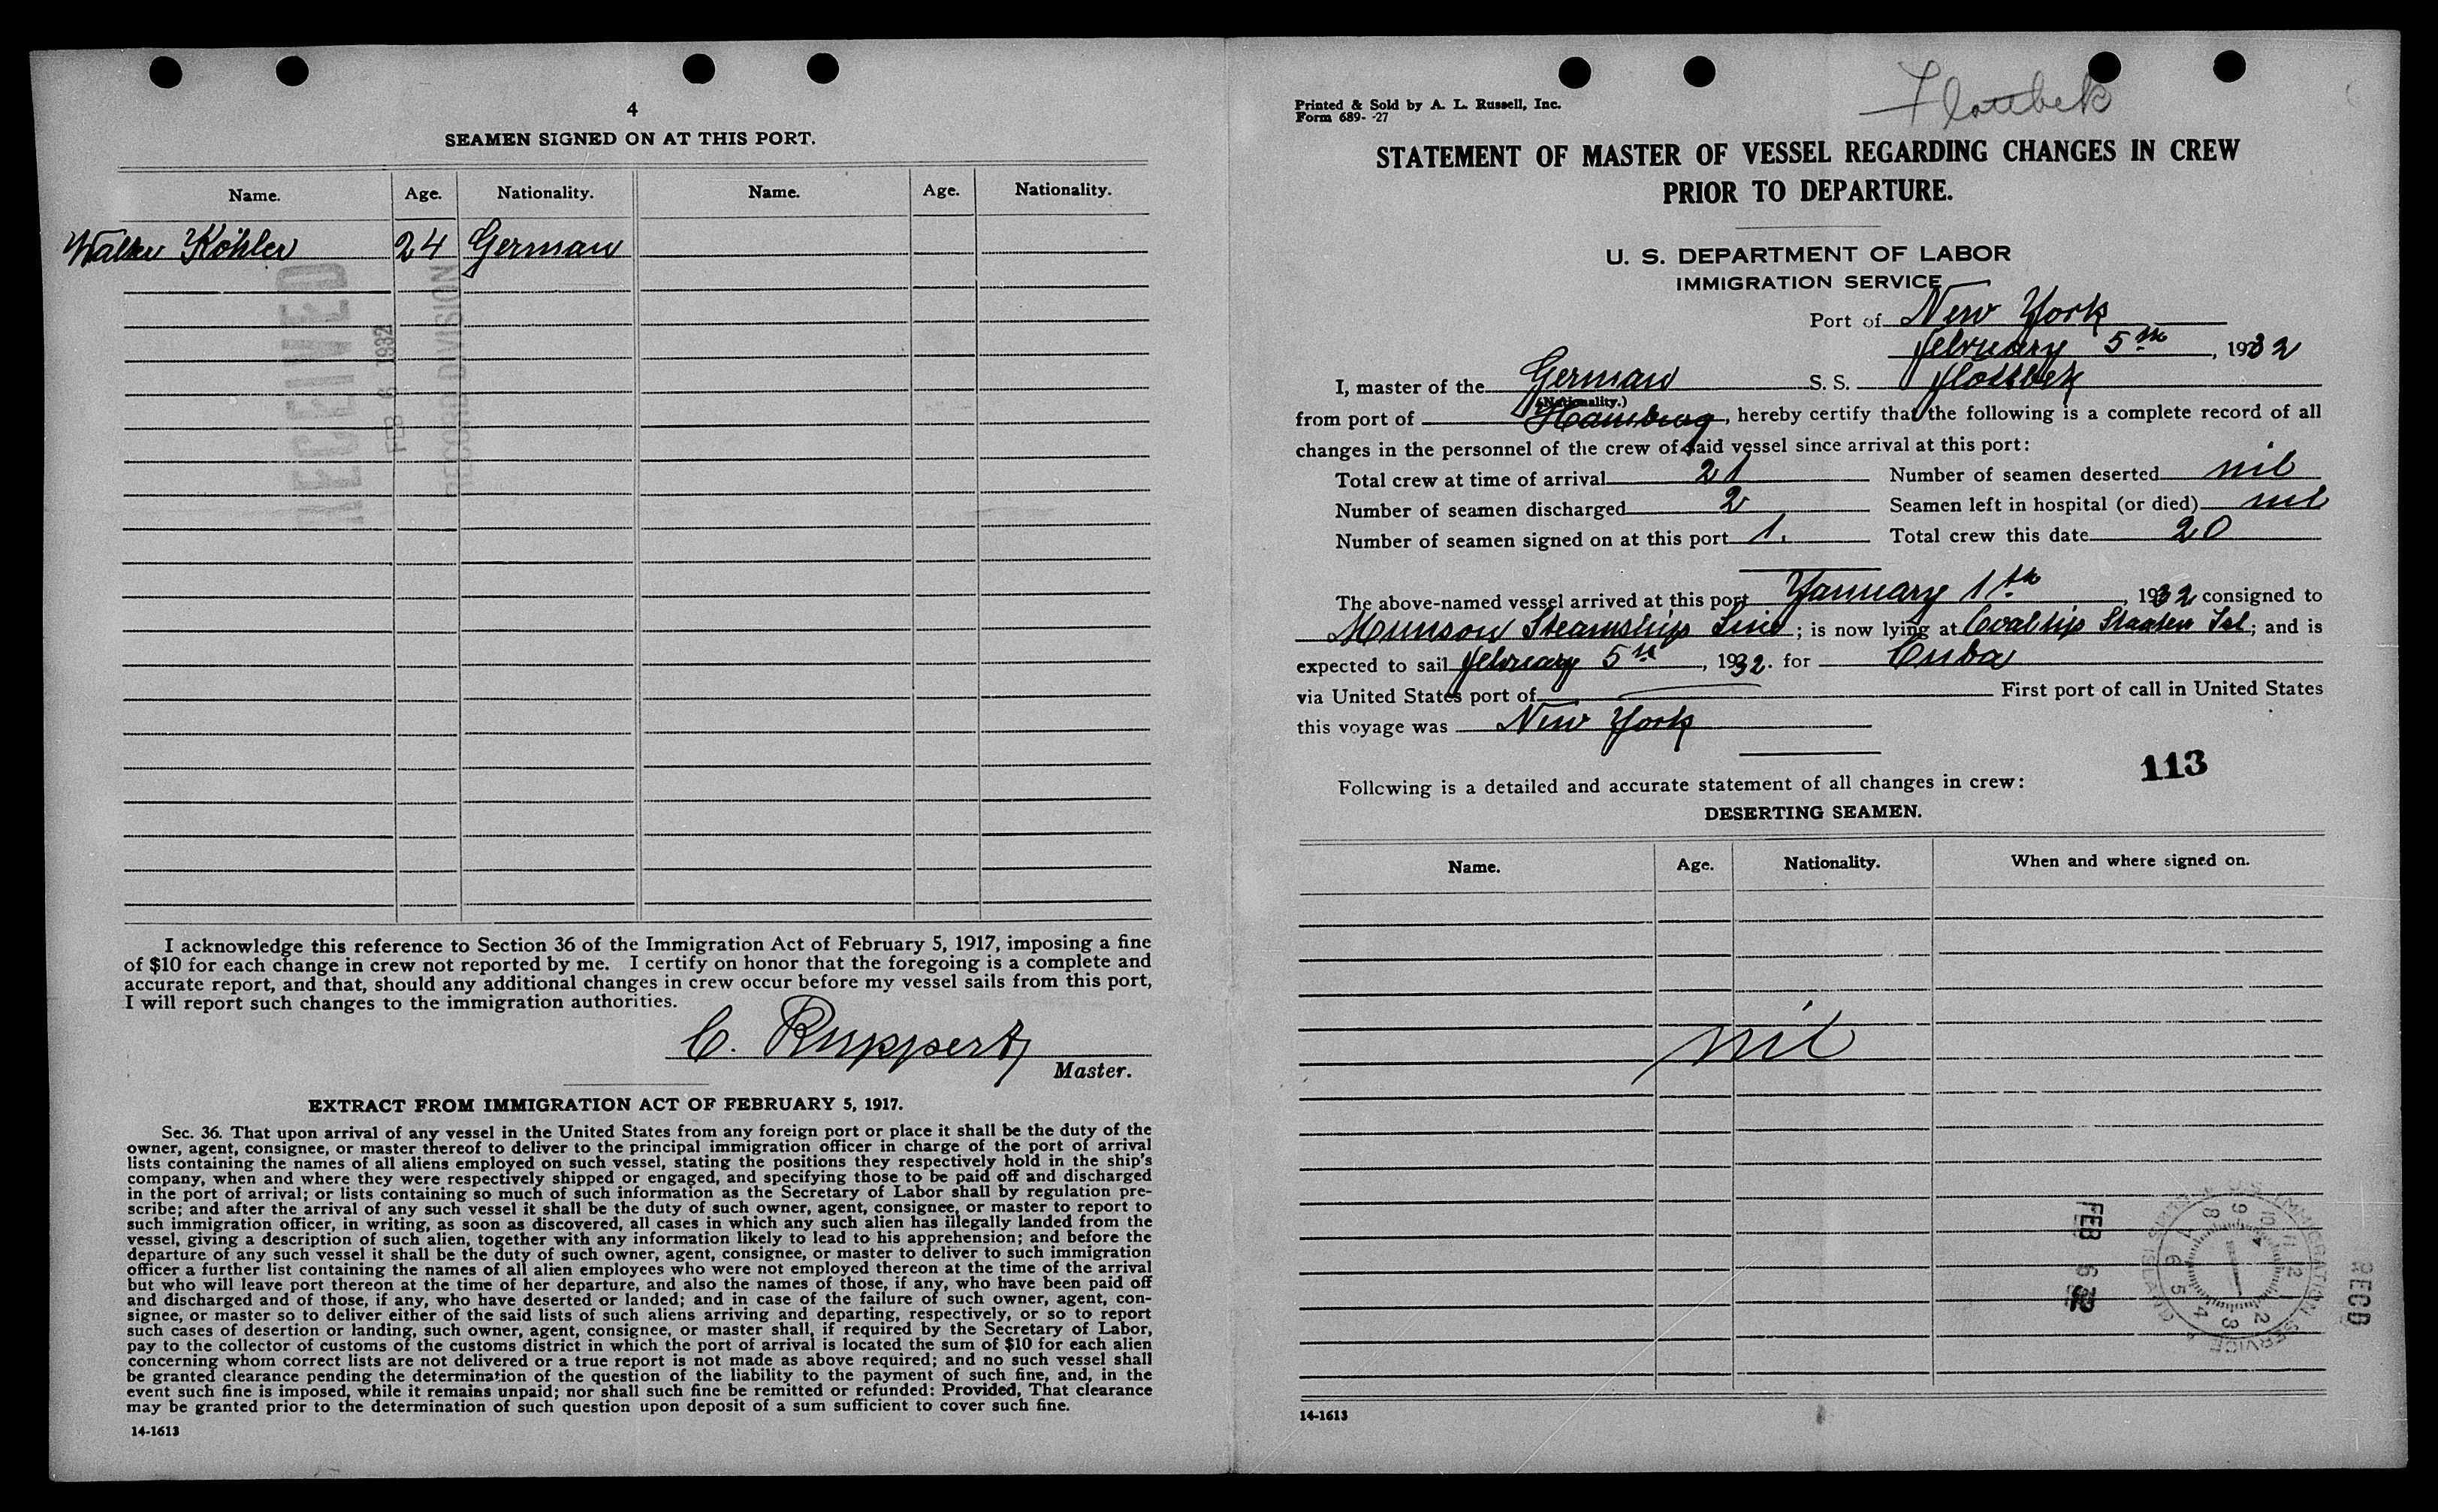 4
SEAMEN SIGNED ON AT THIS PORT.
Name. Age. Nationality. Name. Age. Nationality.
Walter Köhler 24 German
RECEIVED
FEB 6 1932
RECORD DIVISION
I acknowledge this reference to Section 36 of the Immigration Act of February 5, 1917, imposing a fine
of $10 for each change in crew not reported by me. I certify on honor that the foregoing is a complete and
accurate report, and that, should any additional changes in crew occur before my vessel sails from this port,
I will report such changes to the immigration authorities.
C. Ruppert
Master.
EXTRACT FROM IMMIGRATION ACT OF FEBRUARY 5, 1917.
Sec. 36. That upon arrival of any vessel in the United States from any foreign port or place it shall be the duty of the
owner, agent, consignee, or master thereof to deliver to the principal immigration officer in charge of the port of arrival
lists containing the names of all aliens employed on such vessel, stating the positions they respectively hold in the ship's
company, when and where they were respectively shipped or engaged, and specifying those to be paid off and discharged
in the port of arrival; or lists containing so much of such information as the Secretary of Labor shall by regulation pre-
scribe; and after the arrival of any such vessel it shall be the duty of such owner, agent, consignee, or master to report to
such immigration officer, in writing, as soon as discovered, all cases in which any such alien has illegally landed from the
vessel, giving a description of such alien, together with any information likely to lead to his apprehension; and before the
departure of any such vessel it shall be the duty of such owner, agent, consignee, or master to deliver to such immigration
officer a further list containing the names of all alien employees who were not employed thereon at the time of the arrival
but who will leave port thereon at the time of her departure, and also the names of those, if any, who have been paid off
and discharged and of those, if any, who have deserted or landed; and in case of the failure of such owner, agent, con-
signee, or master so to deliver either of the said lists of such aliens arriving and departing, respectively, or so to report
such cases of desertion or landing, such owner, agent, consignee, or master shall, if required by the Secretary of Labor,
pay to the collector of customs of the customs district in which the port of arrival is located the sum of $10 for each alien
concerning whom correct lists are not delivered or a true report is not made as above required; and no such vessel shall
be granted clearance pending the determination of the question of the liability to the payment of such fine, and, in the
event such fine is imposed, while it remains unpaid; nor shall such fine be remitted or refunded: Provided, That clearance
may be granted prior to the determination of such question upon deposit of a sum sufficient to cover such fine.
14-1613
Printed & Sold by A. L. Russell, Inc.
Form 689- -27
Flottbek
STATEMENT OF MASTER OF VESSEL REGARDING CHANGES IN CREW
PRIOR TO DEPARTURE.
U. S. DEPARTMENT OF LABOR
IMMIGRATION SERVICE
Port of New York
February 5th, 1932
I, master of the German S. S. Flottbek
(Nationality.)
from port of Hamburg, hereby certify that the following is a complete record of all
changes in the personnel of the crew of said vessel since arrival at this port:
Total crew at time of arrival 21 Number of seamen deserted nil
Number of seamen discharged 2 Seamen left in hospital (or died) nil
Number of seamen signed on at this port 1. Total crew this date 20
The above-named vessel arrived at this port January 1th, 1932 consigned to
Munson Steamship Line; is now lying at Staaten Isl; and is
expected to sail February 5th, 1932. for Cuba
via United States port of First port of call in United States
this voyage was New York
113
Following is a detailed and accurate statement of all changes in crew:
DESERTING SEAMEN.
Name. Age. Nationality. When and where signed on.
nil
FEB 6 32
U.S. IMMIGRATION SERVICE
ELLIS ISLAND
RECD
14-1613